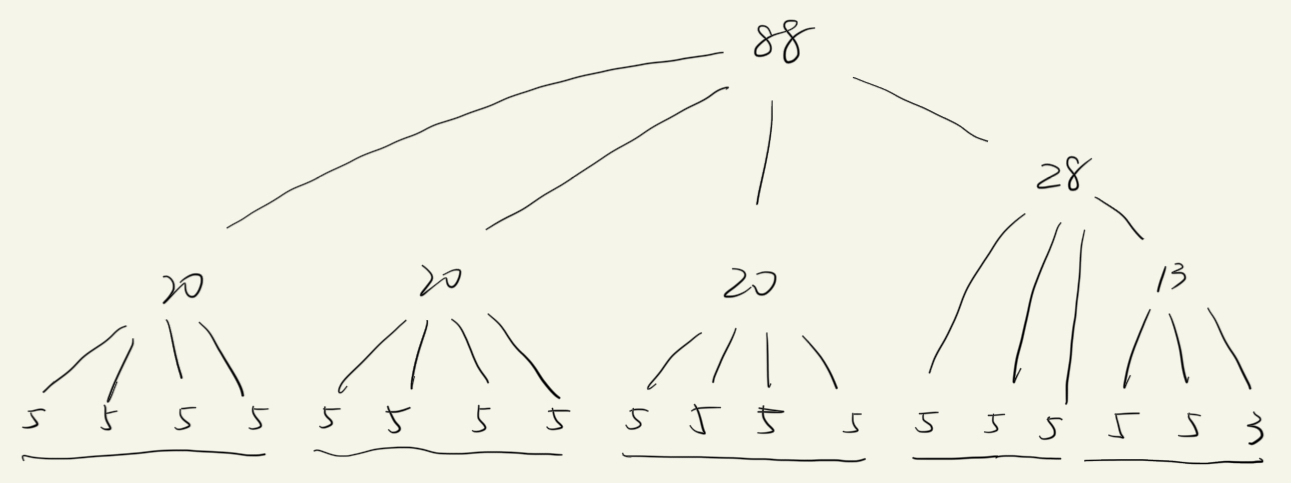 88
28
20 20 20 13
5 5 5 5 5 5 5 5 5 5 5 5 5 5 5 5 5 3